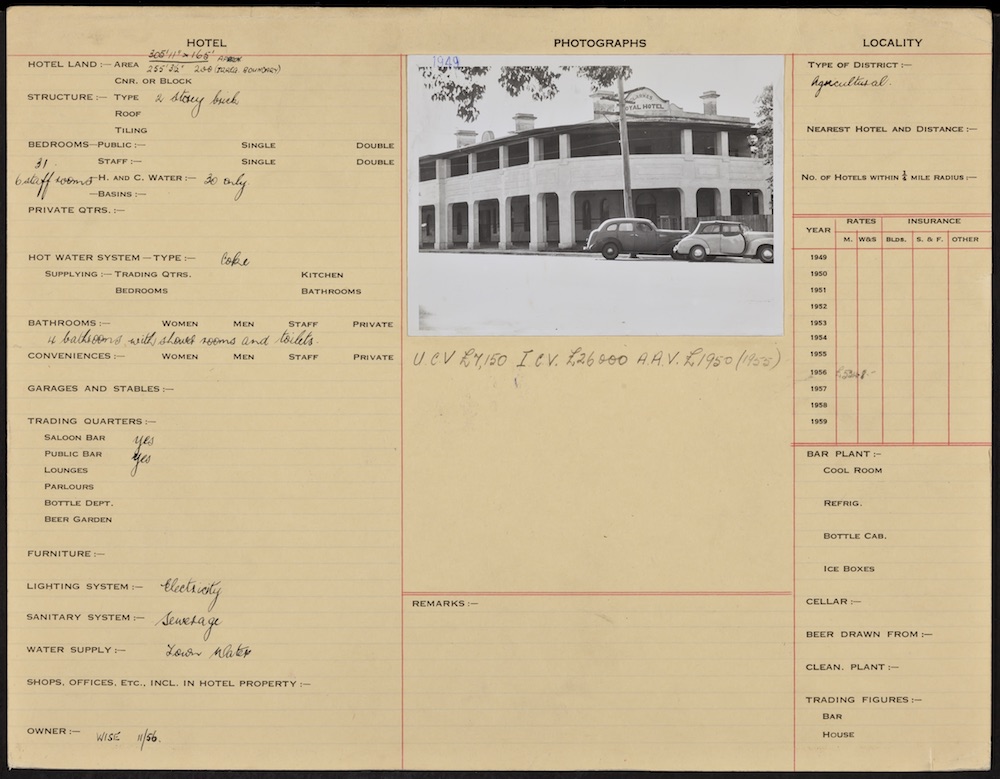 HOTEL
HOTEL LAND :— AREA 305'11" × 165' APPROX
255'3½" 200 (IRREG. BOUNDARY)
CNR. OR BLOCK
STRUCTURE :— TYPE 2 storey brick
ROOF
TILING
BEDROOMS—PUBLIC :— SINGLE DOUBLE
31. STAFF :— SINGLE DOUBLE
6 staff rooms H. AND C. WATER :— 30 only
—BASINS :—
PRIVATE QTRS. :—
HOT WATER SYSTEM—TYPE :— Coke
SUPPLYING :— TRADING QTRS. KITCHEN
BEDROOMS BATHROOMS
BATHROOMS :— WOMEN MEN STAFF PRIVATE
4 bathrooms with shower rooms and toilets.
CONVENIENCES :— WOMEN MEN STAFF PRIVATE
GARAGES AND STABLES :—
TRADING QUARTERS :—
SALOON BAR yes
PUBLIC BAR yes
LOUNGES
PARLOURS
BOTTLE DEPT.
BEER GARDEN
FURNITURE :—
LIGHTING SYSTEM :— Electricity
SANITARY SYSTEM :— Sewerage
WATER SUPPLY :— Town Water
SHOPS, OFFICES, ETC., INCL. IN HOTEL PROPERTY :—
OWNER :— WISE 11/56.
PHOTOGRAPHS
1949
ROYAL HOTEL
U.C.V £7,150 I.C.V. £26000 A.A.V. £1950 (1955)
REMARKS :—
LOCALITY
TYPE OF DISTRICT :—
Agricultural.
NEAREST HOTEL AND DISTANCE :—
NO. OF HOTELS WITHIN ¼ MILE RADIUS :—
YEAR RATES INSURANCE
M. W&S BLDS. S. & F. OTHER
1949
1950
1951
1952
1953
1954
1955
1956
1957
1958
1959
BAR PLANT :—
COOL ROOM
REFRIG.
BOTTLE CAB.
ICE BOXES
CELLAR :—
BEER DRAWN FROM :—
CLEAN. PLANT :—
TRADING FIGURES :—
BAR
HOUSE